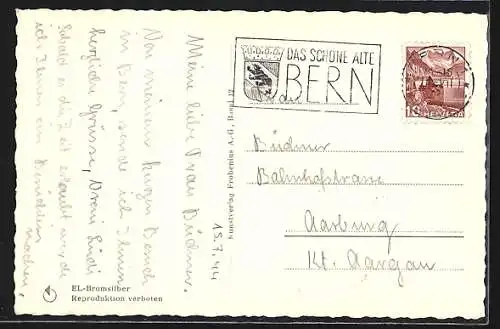 15.7.44
Meine liebe Frau Büchner.
Von meinem kurzen Besuch
in Bern, sende ich Ihnen
herzliche Grüsse, Vreni
Sobald es die Zeit erlaubt werde
ich Ihnen ein Besüchlein
machen.
EL-Bromsilber
Reproduktion verboten
Kunstverlag Frobenius A.-G., Basel
DAS SCHÖNE ALTE
BERN
BERN
10 HELVETIA
Büchner
Bahnhofstrasse
Aarburg
Kt. Aargau